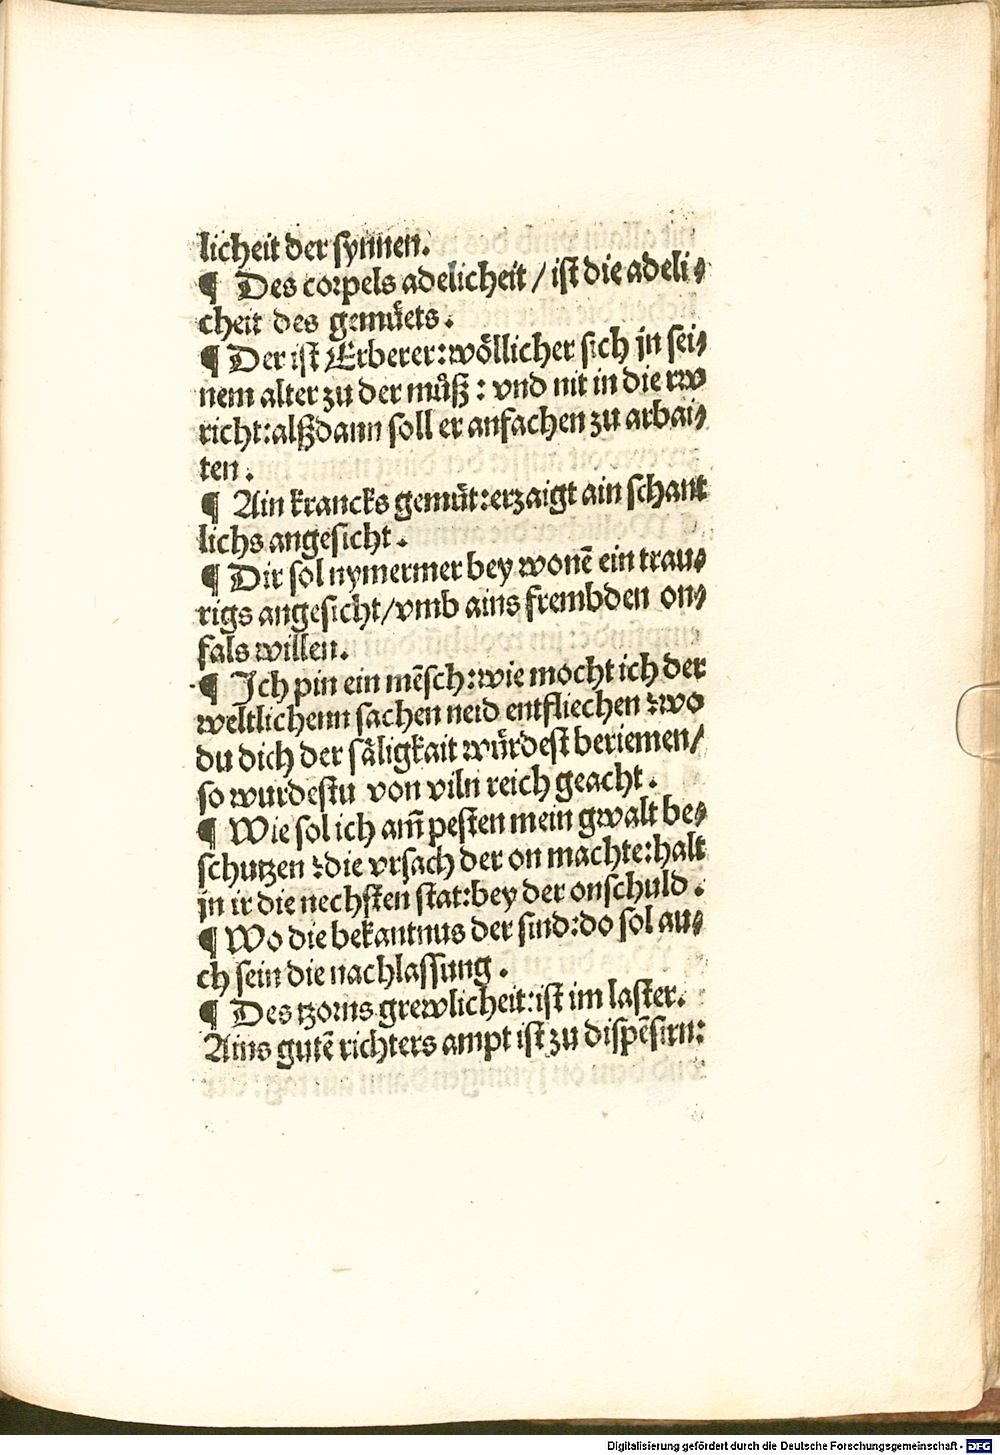 licheit der synnen.
¶ Des corpels adelicheit / ist die adeli⸗
cheit des gemuͤets.
¶ Der ist Erberer: woͤllicher sich jn sei⸗
nem alter zu der muͦß: vnd nit in die rw
richt: alßdann soll er anfachen zu arbai⸗
ten.
¶ Ain krancks gemuͤt: erzaigt ain schant
lichs angesicht.
¶ Dir sol nymermer bey wonē ein trau⸗
rigs angesicht / vmb ains frembden on⸗
fals willen.
¶ Ich pin ein mēsch: wie mocht ich der
weltlichenn sachen neid entfliechen: wo
du dich der saͤligkait wuͤrdest beriemen /
so wurdestu von viln reich geacht.
¶ Wie sol ich am̄ pesten mein gwalt be⸗
schutzen: die vrsach der on machte: halt
jn ir die nechsten stat: bey der onschuld.
¶ Wo die bekantnus der sind: do sol au⸗
ch sein die nachlassung.
¶ Des tzorns grewlicheit: ist im laster.
Ains gutē richters ampt ist zu dispēsirn:
Digitalisierung gefördert durch die Deutsche Forschungsgemeinschaft - DFG